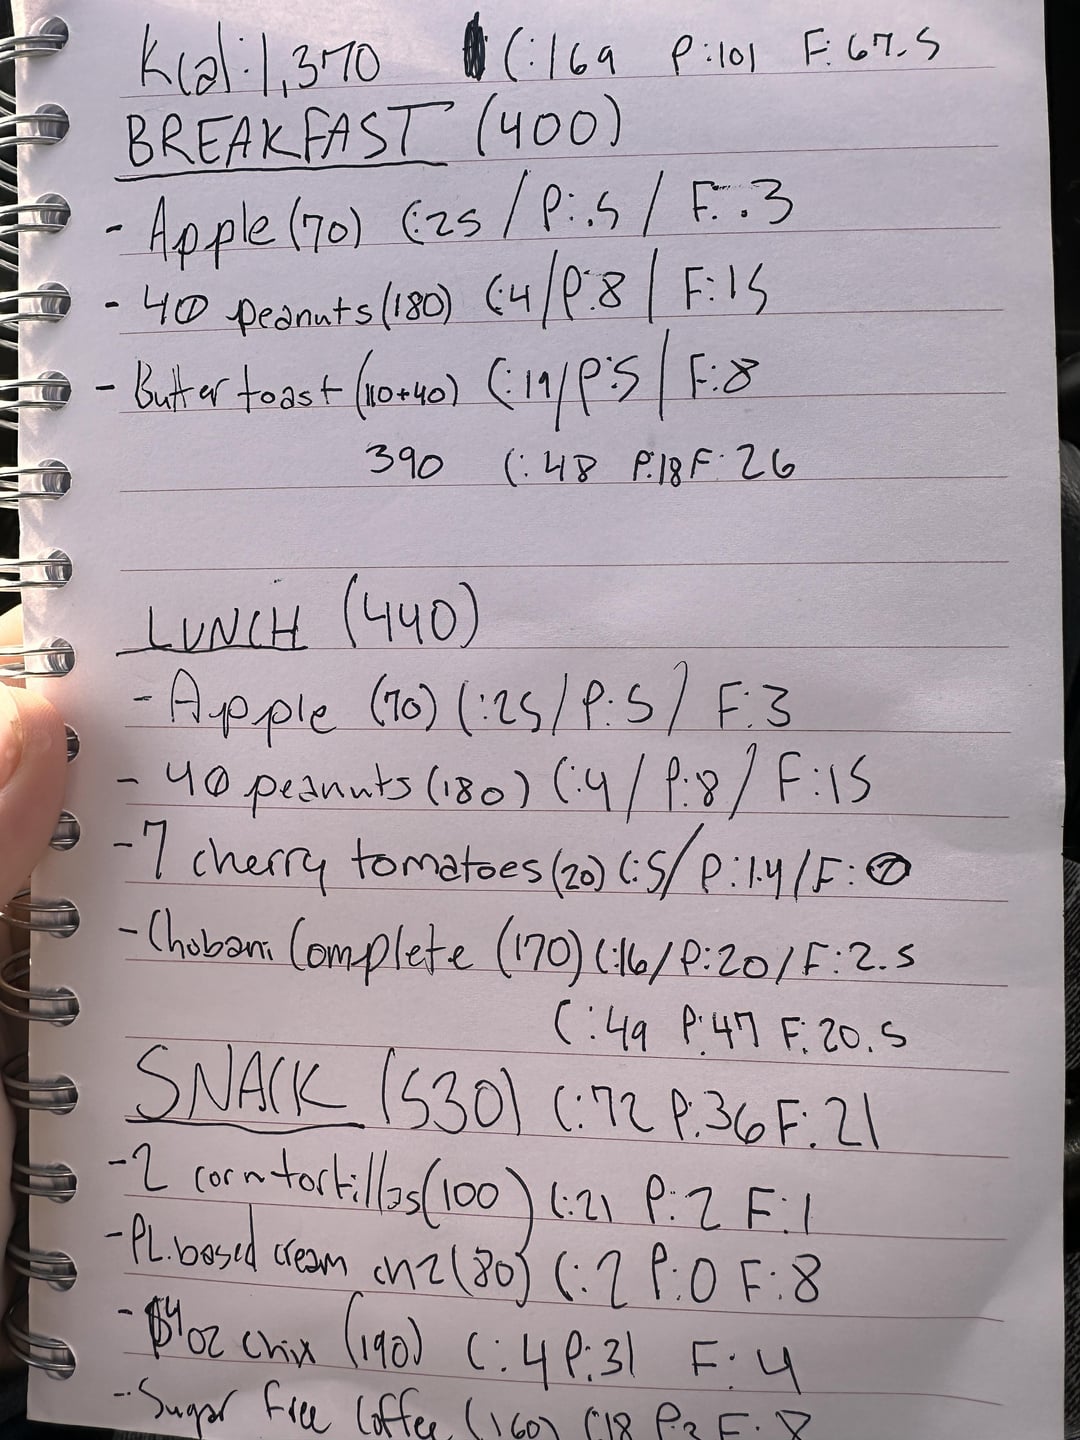 Kcal: 1,370 C:169 P:101 F:67.5
BREAKFAST (400)
- Apple (70) C:25 / P:.5 / F:.3
- 40 peanuts (180) C:4/P:8 / F:15
- Butter toast (110+40) C:19/P:5 / F:8
390 C:48 P:18 F:26
LUNCH (440)
- Apple (70) C:25 / P:5 / F:3
- 40 peanuts (180) C:4 / P:8 / F:15
- 7 cherry tomatoes (20) C:5/ P:1.4/F:0
- Chobani Complete (170) C:16/P:20/F:2.5
C:49 P:47 F:20.5
SNACK (530) C:72 P:36 F:21
- 2 corn tortillas (100) C:21 P:2 F:1
- PL.based cream chz (80) C:2 P:0 F:8
- 4oz chix (190) C:4 P:31 F:4
- Sugar free coffee (160) C18 P:3 F:8